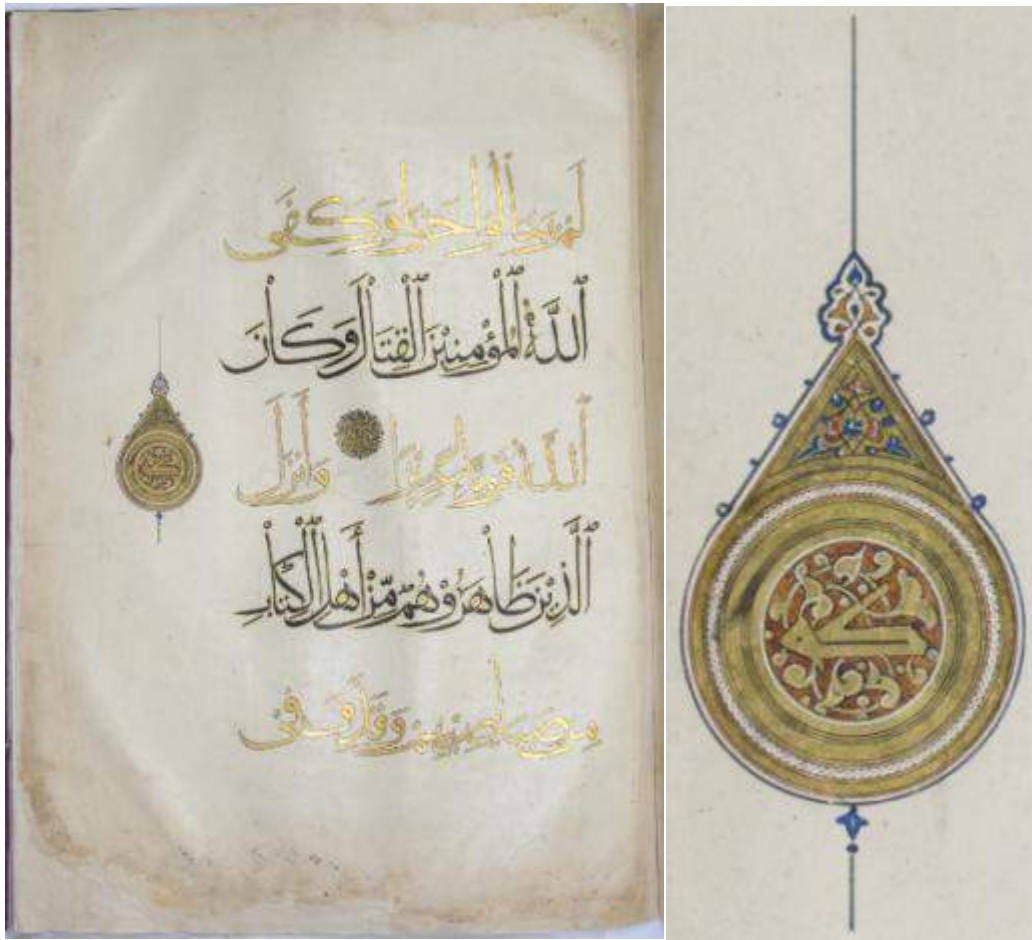 لَمْ ينالوا خيرا وَكَفَى
ٱللَّهُ ٱلْمُؤْمِنِيْنَ ٱلْقِتَالَ وَكَانَ
ٱللَّهُ قويا عزيزا وَأَنْزَلَ
ٱلَّذِيْنَ ظَاهَرُوْهُمْ مِّنْ أَهْلِ ٱلْكِتَابِ
مِن صياصيهم وقذف فى